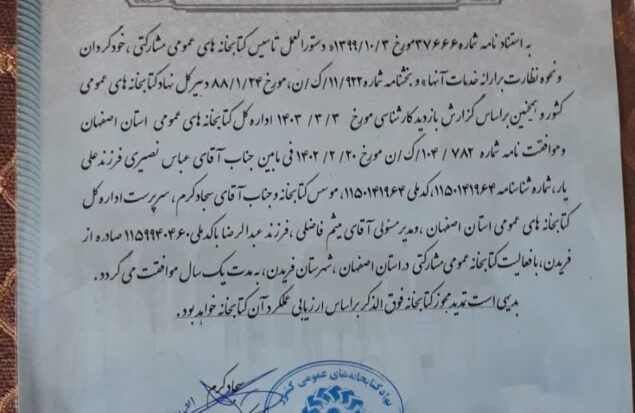 به استناد نامه شماره ۳۷۶۶۶مورخ ۱۳۹۹/۱۰/۳« دستورالعمل تاسیس کتابخانه های عمومی مشارکتی ، خودگردان
و نحوه نظارت برارائه خدمات آنها» و بخشنامه شماره ۱۱/۹۲۲/ک/ن، مورخ ۸۸/۱/۲۴ دبیرکل نهاد کتابخانه های عمومی
کشور و همچنین براساس گزارش بازدید کارشناسی مورخ ۱۴۰۳/۳/۳ اداره کل کتابخانه های عمومی استان اصفهان
و موافقت نامه شماره ۷۸۲ /۱۰۴/ک/ن مورخ ۱۴۰۲/۲/۲۰ فی مابین جناب آقای عباس نصیری فرزند علی
یار، شماره شناسنامه ۱۱۵۰۱۴۱۹۶۴، کدملی ۱۱۵۰۱۴۱۹۶۴، موسس کتابخانه و جناب آقای سجاد کرم ، سرپرست اداره کل
کتابخانه های عمومی استان اصفهان ، و مدیر مسئولی آقای میثم فاضلی ، فرزند عبدالرضا با کدملی ۱۱۵۹۹۴۰۴۶۰ صادره از
فریدن، با فعالیت کتابخانه عمومی مشارکتی در استان اصفهان ، شهرستان فریدن، به مدت یک سال موافقت می گردد .
بدیهی است تمدید مجوز کتابخانه فوق الذکر براساس ارزیابی عملکرد آن کتابخانه خواهد بود .
سجاد کرم
نهاد کتابخانه های عمومی کشور